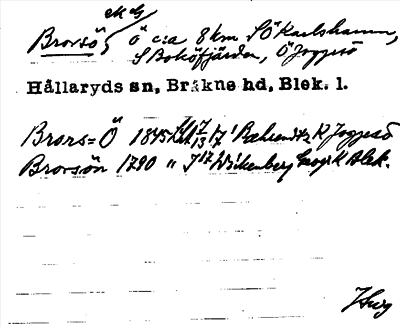 Brorsö, Ö c:a 8 km SÖ Karlshamn,
S Boköfjärden, Ö Joggesö
Hällaryds sn, Bräkne hd, Blek. l.
Brors=Ö 1845 Joggesö
Brorsön 1790 " Wikenberg Geogr K Blek.